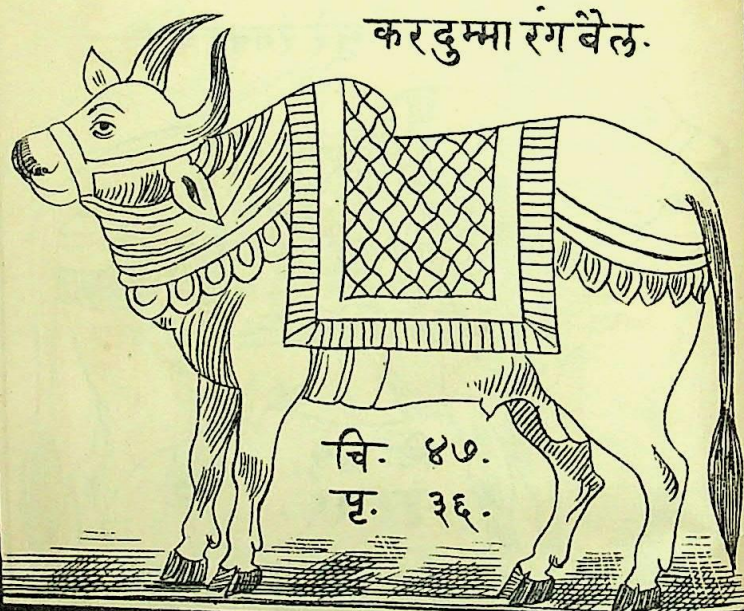 करदुम्मा रंग बैल.
चि. ४७.
पृ. ३६.